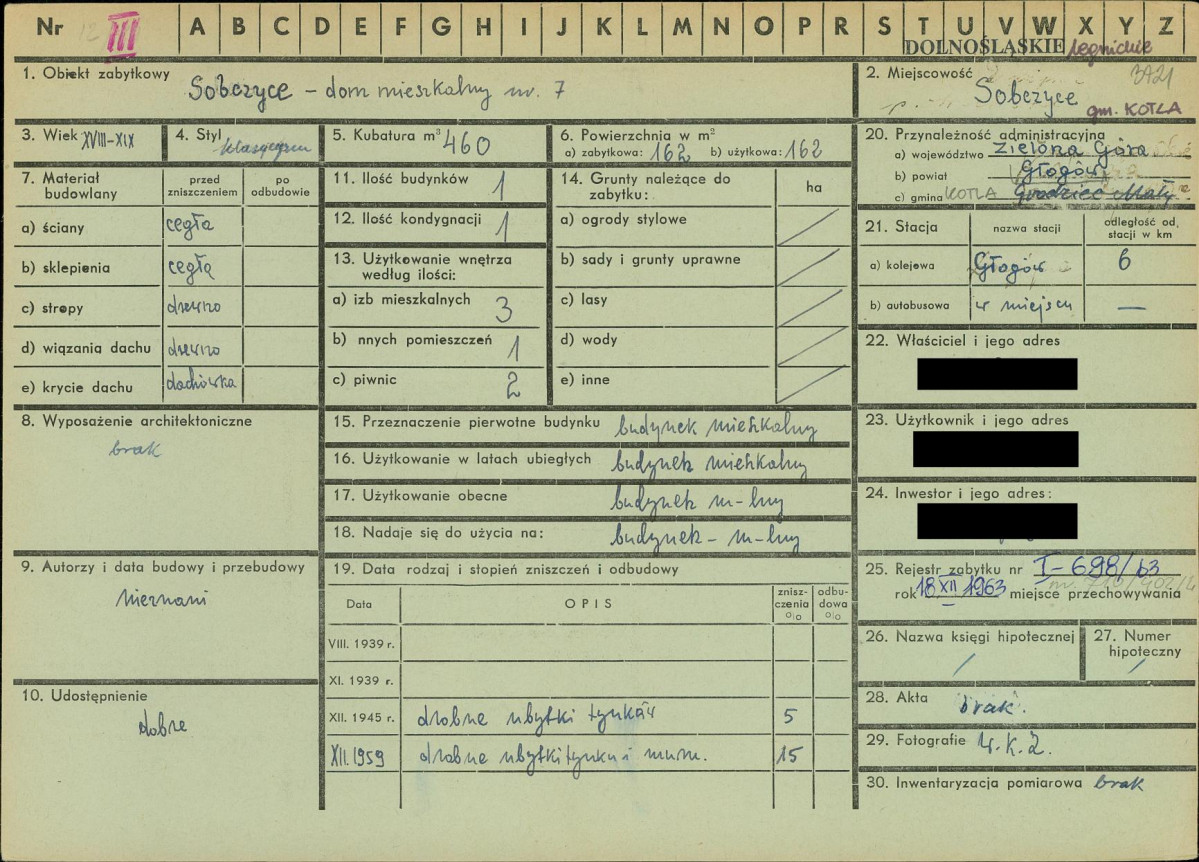 Nr 12 III A B C D E F G H I J K L M N O P R S T U V W X Y Z
DOLNOŚLĄSKIE legnickie
1. Obiekt zabytkowy
Sobczyce – dom mieszkalny nr. 7
2. Miejscowość
Sobczyce
gm. KOTLA
3. Wiek XVIII–XIX
4. Styl klasycyzm
5. Kubatura m³ 460
6. Powierzchnia w m²
a) zabytkowa: 162 b) użytkowa: 162
20. Przynależność administracyjna
a) województwo Zielona Góra
b) powiat Głogów
c) gmina KOTLA Grodziec Mały
7. Materiał budowlany
przed zniszczeniem
po odbudowie
a) ściany cegła
b) sklepienia cegła
c) stropy drewno
d) wiązania dachu drewno
e) krycie dachu dachówka
11. Ilość budynków 1
12. Ilość kondygnacji 1
13. Użytkowanie wnętrza
według ilości:
a) izb mieszkalnych 3
b) nnych pomieszczeń 1
c) piwnic 2
14. Grunty należące do
zabytku:
ha
a) ogrody stylowe
b) sady i grunty uprawne
c) lasy
d) wody
e) inne
21. Stacja
nazwa stacji
odległość od stacji w km
a) kolejowa Głogów 6
b) autobusowa w miejscu —
22. Właściciel i jego adres
23. Użytkownik i jego adres
24. Inwestor i jego adres:
8. Wyposażenie architektoniczne
brak
15. Przeznaczenie pierwotne budynku budynek mieszkalny
16. Użytkowanie w latach ubiegłych budynek mieszkalny
17. Użytkowanie obecne budynek m–lny
18. Nadaje się do użycia na: budynek – m–lny
9. Autorzy i data budowy i przebudowy
nieznani
10. Udostępnienie
dobre
19. Data rodzaj i stopień zniszczeń i odbudowy
Data
OPIS
znisz-czenia %
odbu-dowa %
VIII. 1939 r.
XI. 1939 r.
XII. 1945 r. drobne ubytki tynków 5
XII. 1959 drobne ubytki tynku i mum. 15
25. Rejestr zabytku nr I–698/63
rok 18 XII 1963 miejsce przechowywania
26. Nazwa księgi hipotecznej
27. Numer hipoteczny
28. Akta brak.
29. Fotografie W.K.Z.
30. Inwentaryzacja pomiarowa brak